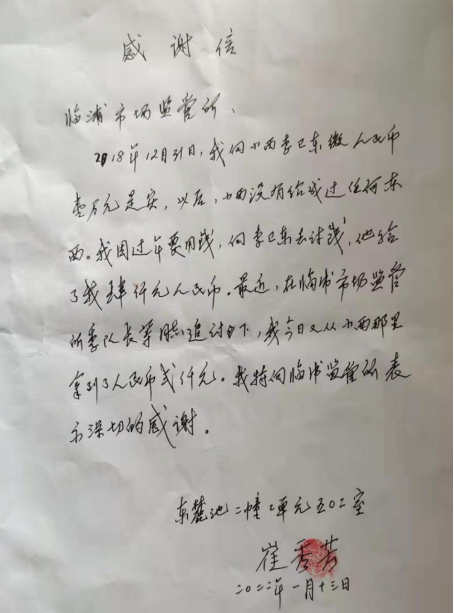 感谢信
临浦市场监管所、
2018年12月31日，我向小西李卫东缴人民币
壹万元是实，以后，小西没有给我过任何东
西。我因过年要用钱，向李卫东去讨钱，他给
了我肆仟元人民币。最近，在临浦市场监管
所李队长等追讨下，我今日又从小西那里
拿到了人民币弍仟元。我特向临浦监管所表
示深切的感谢。
东麓池二幢二单元五〇二室
崔秀芳
二〇二二年一月十三日